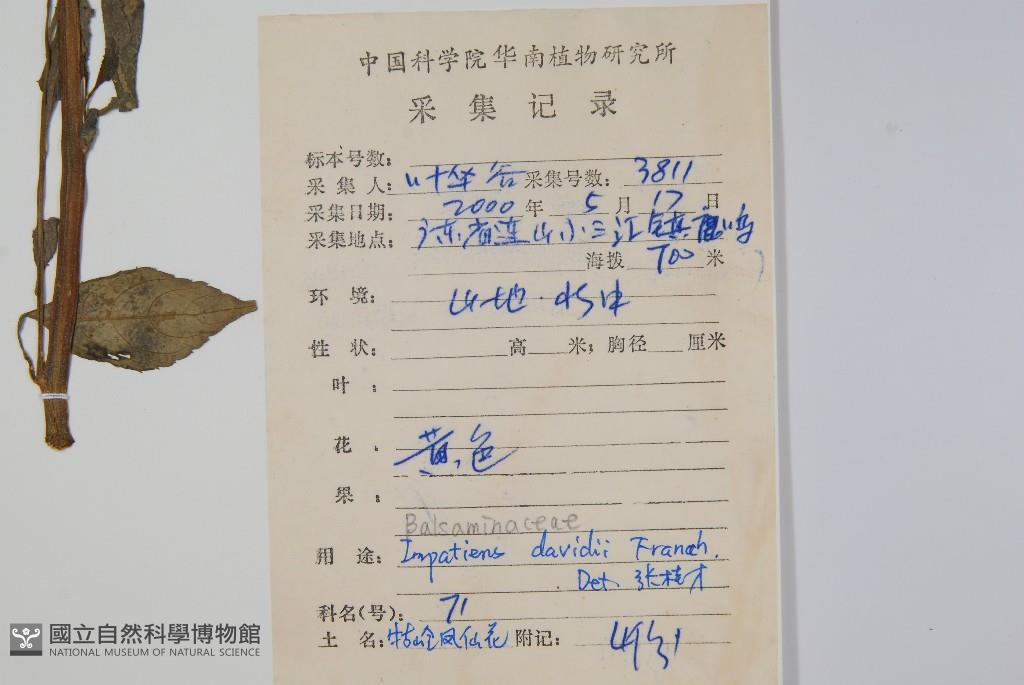 中国科学院华南植物研究所
采集记录
标本号数:
采集人: 叶华谷 采集号数: 3811
采集日期: 2000 年 5 月 17 日
采集地点: 广东省连山小三江镇
海拨 700 米
环境: 山地·
性状: 高 米; 胸径 厘米
叶:
花: 黄色
果:
Balsaminaceae
用途: Impatiens davidii Franch.
Det. 张桂才
科名(号): 71
土名: 牯岭凤仙花 附记:
國立自然科學博物館
NATIONAL MUSEUM OF NATURAL SCIENCE